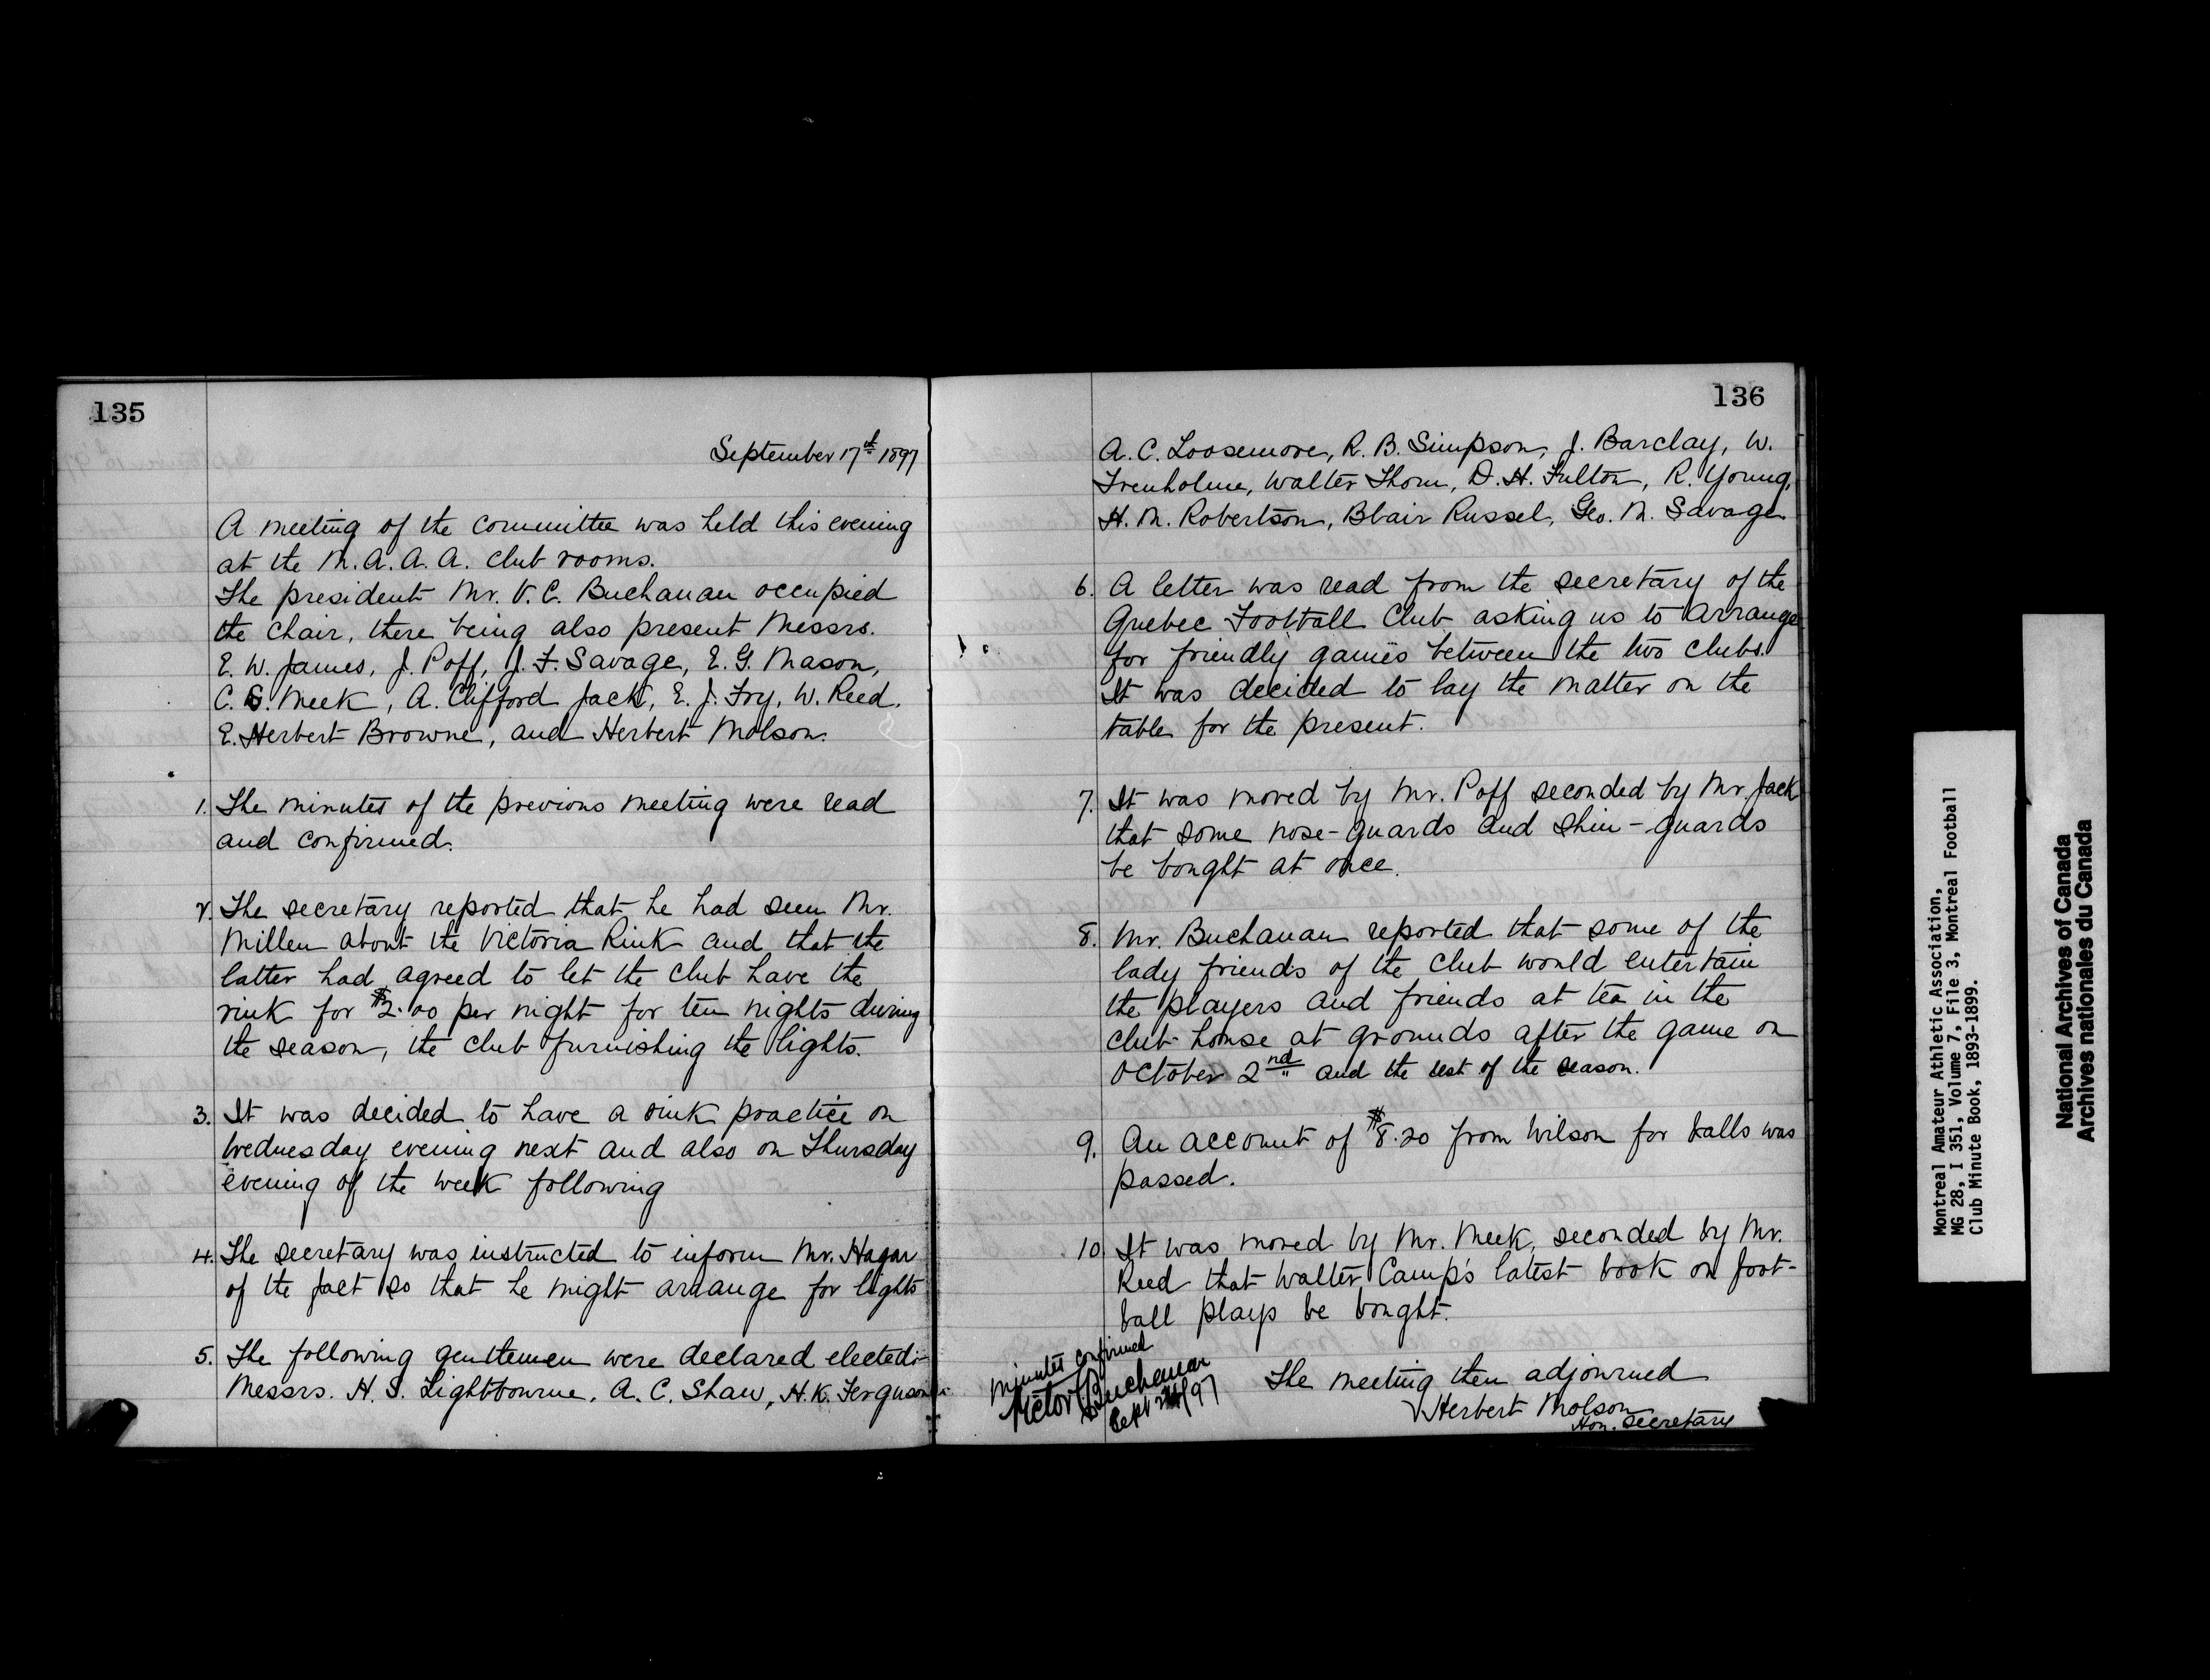 135
September 17th 1897
A meeting of the committee was held this evening
at the M.A.A.A. club rooms.
The president Mr. V. C. Buchanan occupied
the chair, there being also present Messrs.
E. W. James, J. Poff, J. F. Savage, E. G. Mason,
C. S. Meek, A. Clifford Jack, E. J. Fry, W. Reed,
E. Herbert Browne, and Herbert Molson.
1. The minutes of the previous meeting were read
and confirmed.
2. The secretary reported that he had seen Mr.
Millen about the Victoria Rink and that the
latter had agreed to let the club have the
rink for $2.00 per night for ten nights during
the season, the club furnishing the lights.
3. It was decided to have a rink practice on
Wednesday evening next and also on Thursday
evening of the week following
4. The secretary was instructed to inform Mr. Hagar
of the fact so that he might arrange for lights
5. The following gentlemen were declared elected:-
Messrs. H. S. Lightbourne, A. C. Shaw, H. K. Ferguson
136
A. C. Loosemore, R. B. Simpson, J. Barclay, W.
Trenholme, Walter Thom, D. H. Fulton, R. Young,
H. M. Robertson, Blair Russel, Geo. M. Savage
6. A letter was read from the secretary of the
Quebec Football Club asking us to arrange
for friendly games between the two clubs.
It was decided to lay the matter on the
table for the present.
7. It was moved by Mr. Poff seconded by Mr. Jack
that some nose-guards and shin-guards
be bought at once.
8. Mr. Buchanan reported that some of the
lady friends of the club would entertain
the players and friends at tea in the
club-house at grounds after the game on
October 2nd and the rest of the season.
9. An account of $8.20 from Wilson for balls was
passed.
10. It was moved by Mr. Meek, seconded by Mr.
Reed that Walter Camp's latest book on foot-
ball plays be bought.
The meeting then adjourned
Herbert Molson
Hon. Secretary
Minutes confirmed
Victor C Buchanan
Sept /97
Montreal Amateur Athletic Association,
MG 28, I 351, Volume 7, File 3, Montreal Football
Club Minute Book, 1893-1899.
National Archives of Canada
Archives nationales du Canada